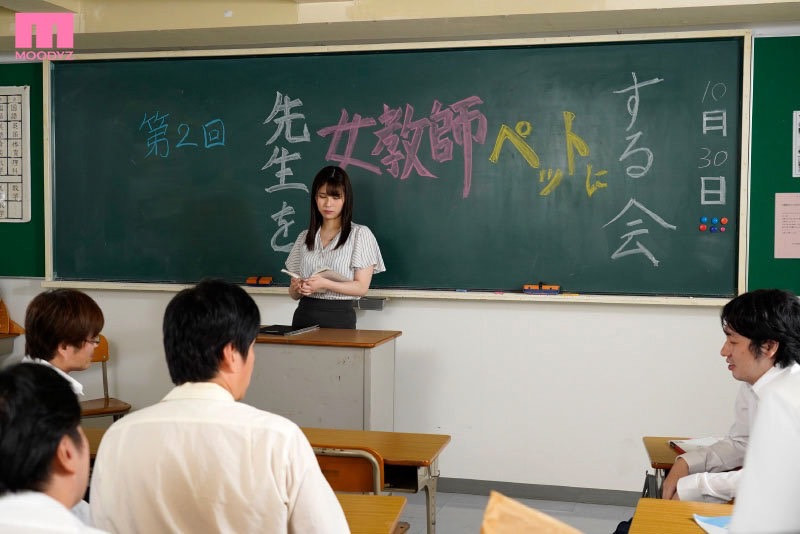 M
MOODYZ
第2回
先生を
女教師
ペットに
する会
10月30日